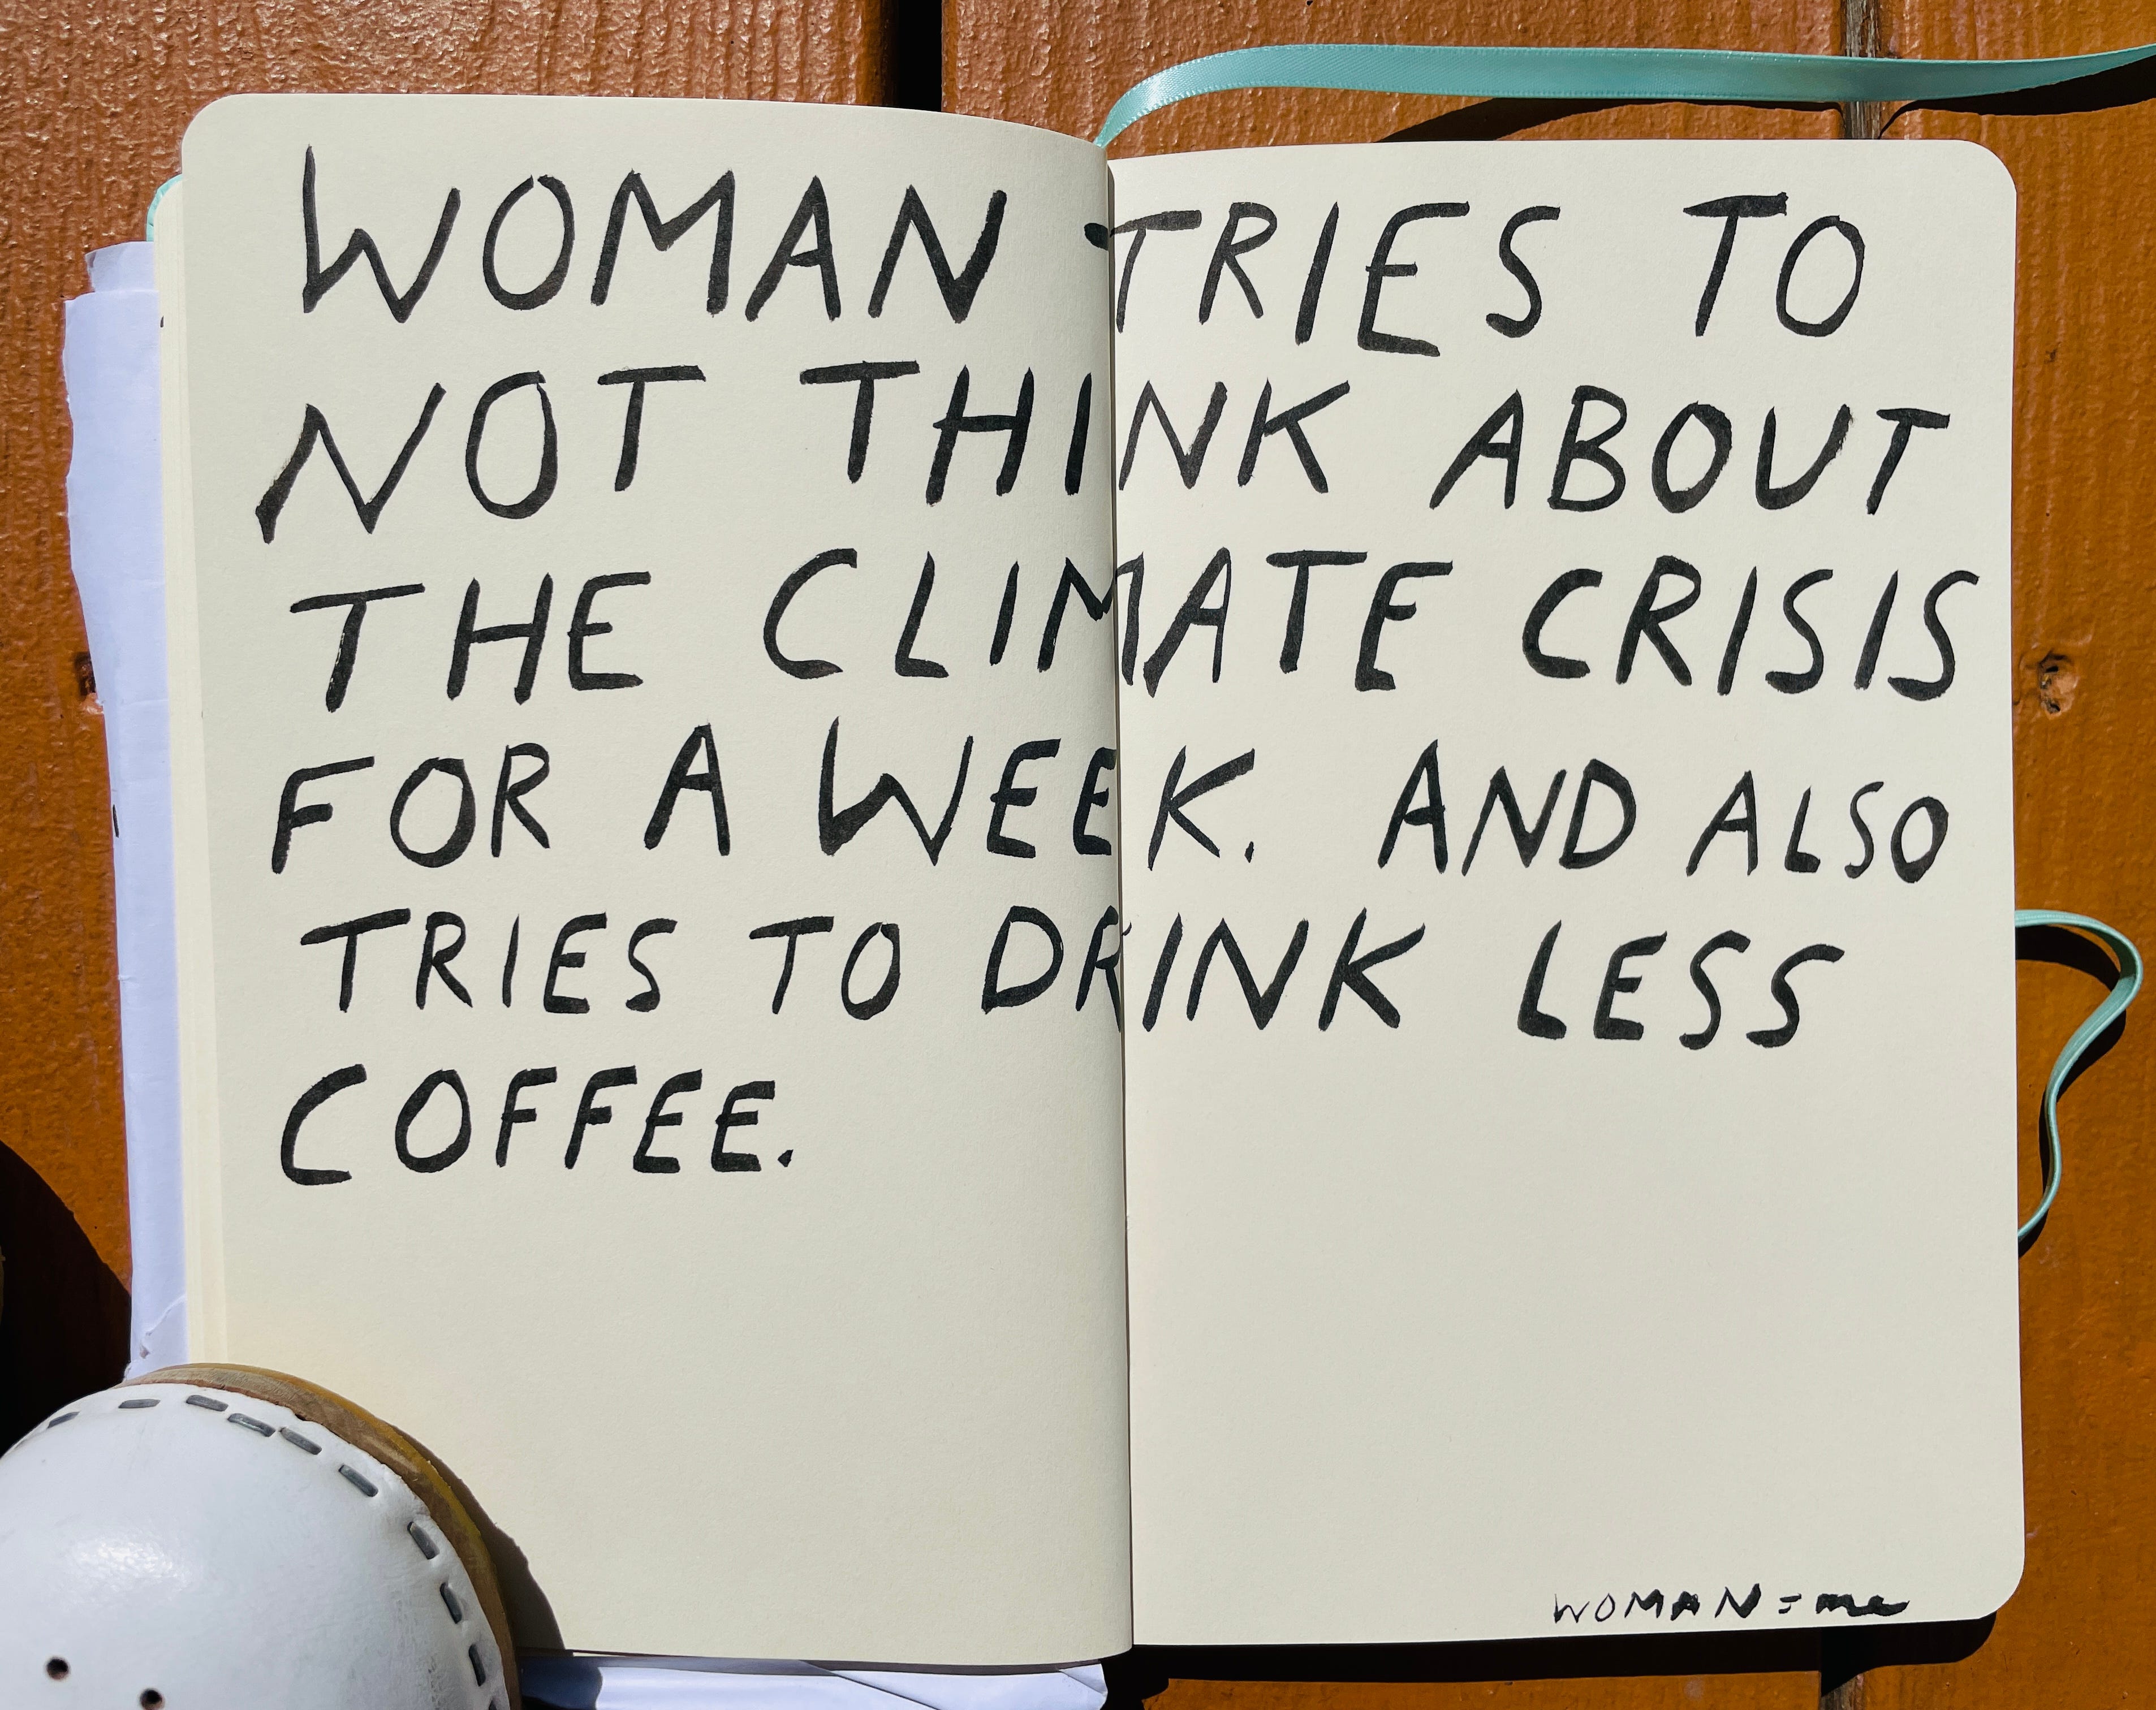 WOMAN TRIES TO
NOT THINK ABOUT
THE CLIMATE CRISIS
FOR A WEEK. AND ALSO
TRIES TO DRINK LESS
COFFEE.
WOMAN = me